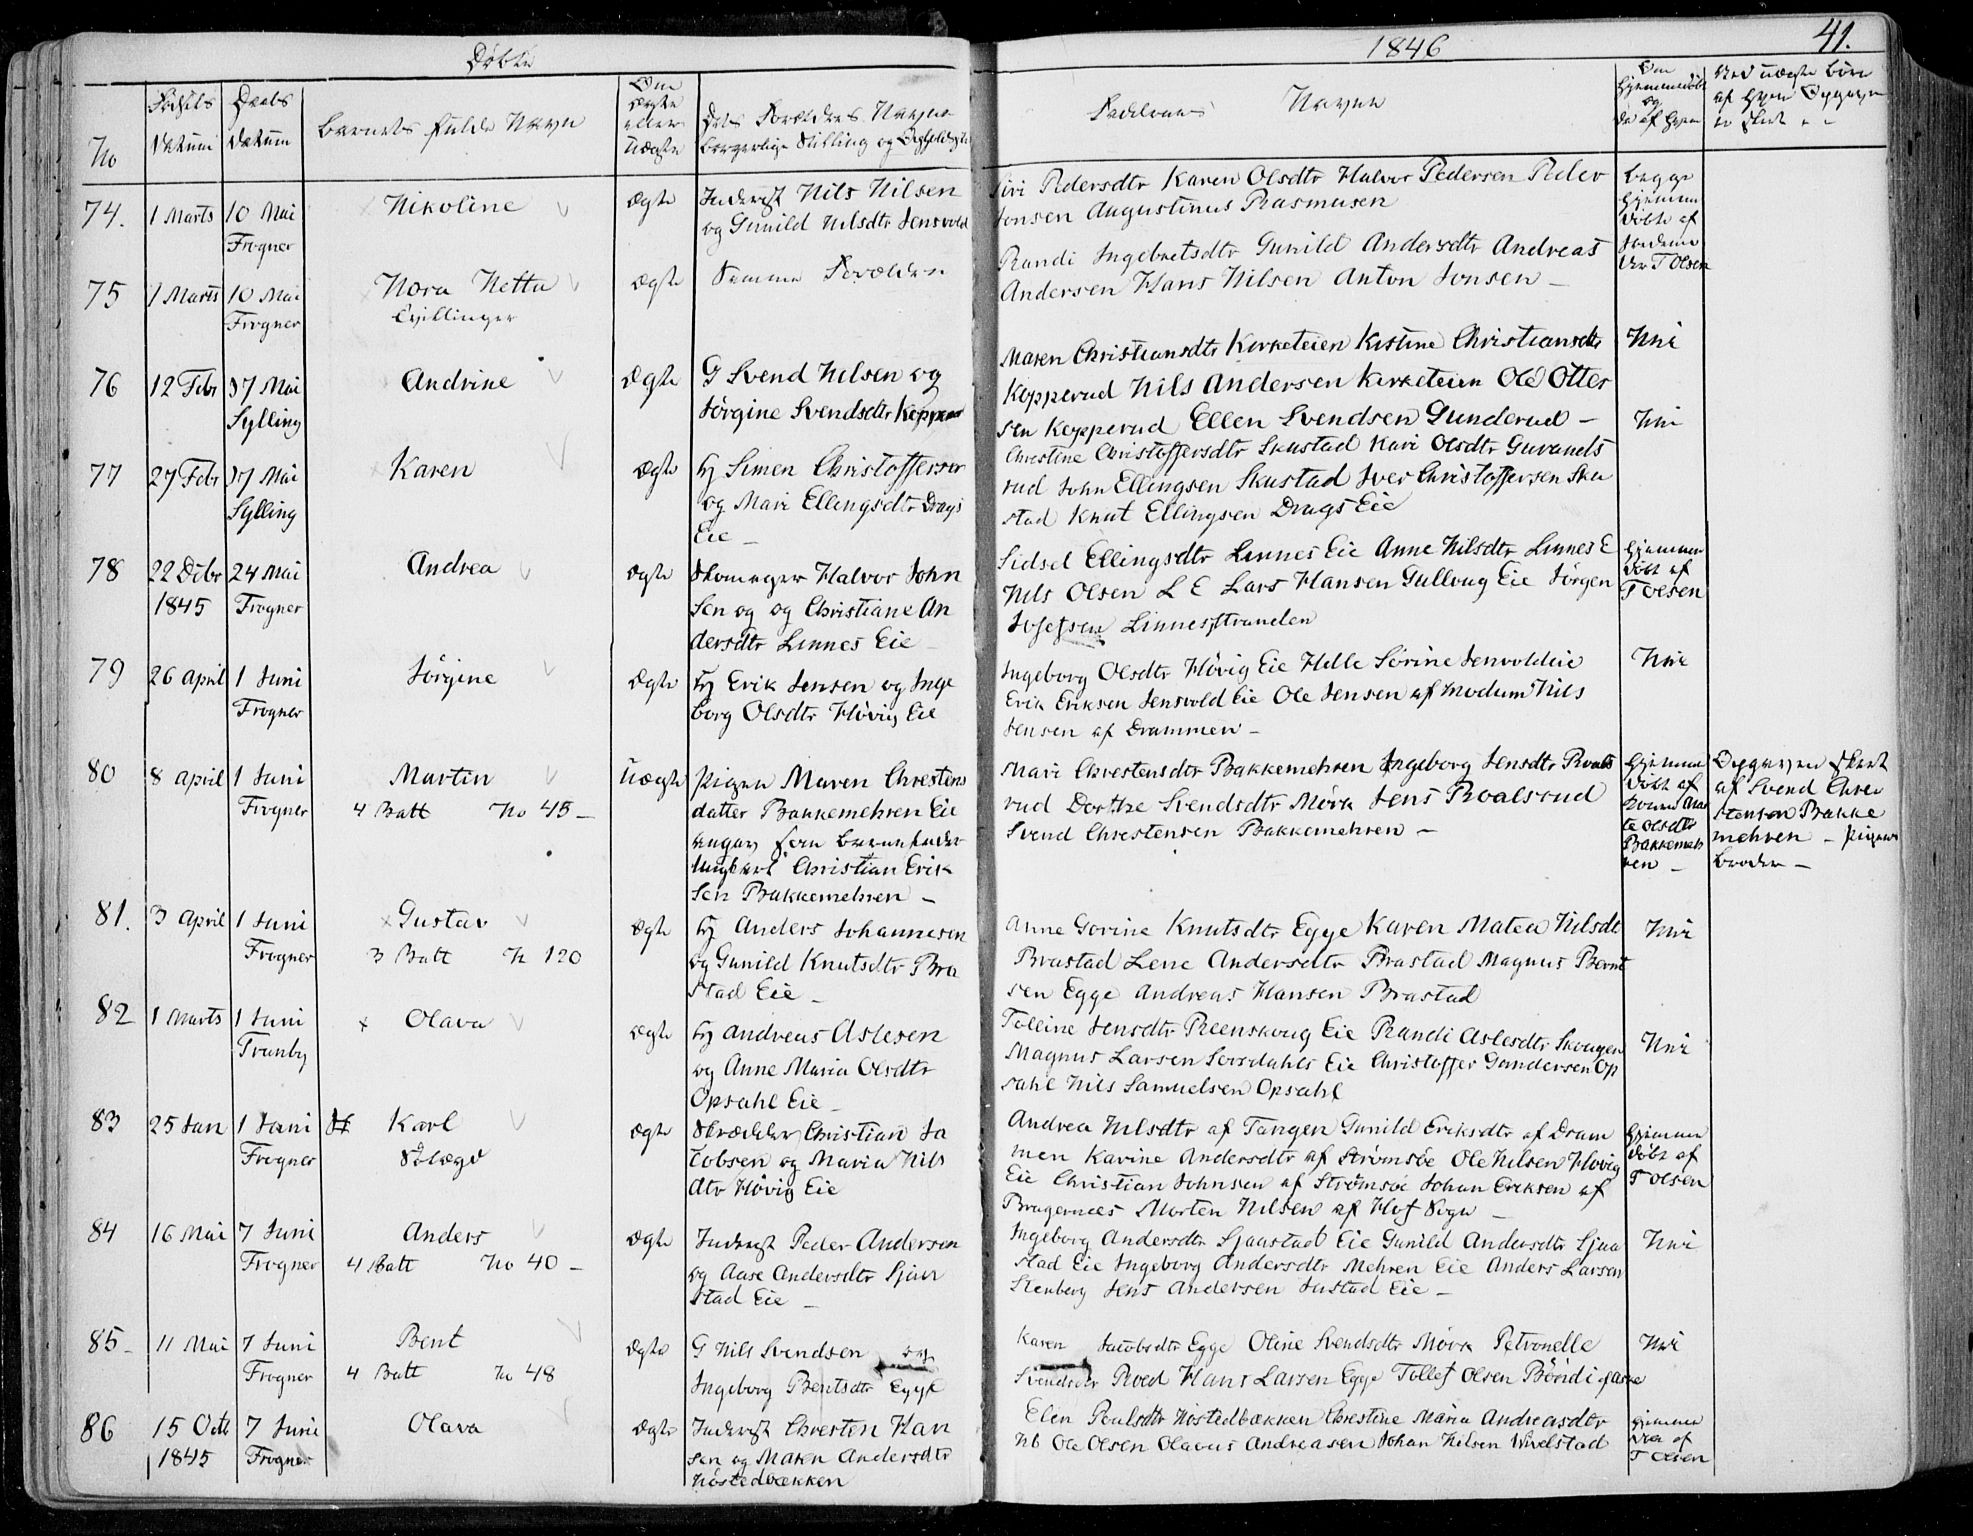 Døbte
1846
41.
No
Fødsels
Datum
Daabs
Datum
Barnets fulde Navn
Om
ægte
eller
uægte
Dets Forældres Navne
borgerlige Stilling og
Faddernes Navne
Om
hjemmedøbt
og
da af hvem
Ved uægte Børn
af hvem Opgaven
er skeet
74. 1 Marts 10 Mai Nikoline ægte Inderst Nils Nilsen
Frogner og Gunild Nilsdtr Jensvold
Siri Pedersdtr Karen Olsdtr Halvor Pedersen Peder
Jonsen Augustinus Rasmusen
Begge
hjemme
døbte af
T Olsen
75 1 Marts 10 Mai Nora Netta ægte Samme Forældre
Frogner Tvillinger
Randi Ingebretsdtr Gunild Andersdtr Andreas
Andersen Hans Nilsen Anton Jonsen –
76 12 Febr 17 Mai Andrine ægte G Svend Nilsen og
Sylling Jørgine Svendsdtr Kopperud
Maren Christiansdtr Kirketeien Kistine Christiansdtr
Kopperud Nils Andersen Kirketeien Ole Otter
sen Kopperud Ellen Svendsen Gunderud –
Nei
77 27 Febr 17 Mai Karen ægte Hj Simen Christoffersen
Sylling og Mari Ellingsdtr Drags
Eie –
Christine Christoffersdtr Skustad Kari Olsdtr Guvands
rud John Ellingsen Skustad Iver Christoffersen Sku
stad Knut Ellingsen Drags Eie
Nei
78 22 Debr 24 Mai Andrea ægte Skomager Halvor John
1845 Frogner sen og og Christiane An
dersdtr Linnes Eie
Sidsel Ellingsdtr Linnes Eie Anne Nilsdtr Linnes E
Nils Olsen L E Lars Hansen Gullaug Eie Jørgen
Josefsen Linnesstranden
hjemme
døbt af
T Olsen
79 26 April 1 Juni Jørgine ægte Hj Erik Jensen og Inge
Frogner borg Olsdtr Høvig Eie
Ingeborg Olsdtr Høvig Eie Helle Sørine Jensvoldeie
Erik Eriksen Jensvold Eie Ole Jensen af Modum Nils
Jensen af Drammen –
Nei
80 8 April 1 Juni Martin uægte Pigen Maren Chrestens
Frogner 4 Batt No 45 – datter Bakkemehren Eie
angav som Barnefader
Ungkarl Christian Erik
sen Bakkemehren –
Mari Chrestensdtr Bakkemehren Ingeborg Jensdtr Roals
rud Dorthe Svendsdtr Mørk Jens Roalsrud
Svend Chrestensen Bakkemehren –
hjemme
døbt af
Mar
te Olsdtr
Bakkemeh
ren –
Opgaven skeet
af Svend Chre
stensen Bakke
mehren – Pigens
broder –
81. 3 April 1 Juni Gustav ægte Hj Anders Johannesen
Frogner 3 Batt N 120 og Gunild Knutsdtr Bra
stad Eie –
Anne Gorine Knutsdtr Egge Karen Matea Nilsdt
Brastad Lene Andersdtr Brastad Magnus Bernt
sen Egge Andreas Hansen Brastad
Nei
82 1 Marts 1 Juni Olava ægte Hj Andreas Aslesen
Tranby og Anne Maria Olsdtr
Opsahl Eie –
Tolline Jensdtr Reenskoug Eie Randi Aslesdtr Skougen
Magnus Larsen Sørsdahls Eie Christoffer Gundersen Op
sahl Nils Samuelsen Opsahl
Nei
83 25 Jan 1 Juni Karl ægte Skrædder Christian Ja
Frogner cobsen og Maria Nils
dtr Høvig Eie
Andrea Nilsdtr af Tangen Gunild Eriksdtr af Dram
men Karine Andersdtr af Strømsøe Ole Nilsen Høvig
Eie Christian Johnsen af Strømsøe Johan Eriksen af
Bragernees Morten Nilsen af Hof Sogn –
hjemme
døbt af
T Olsen
84 16 Mai 7 Juni Anders ægte Inderst Peder Andersen
Frogner 4 Batt No 40 – og Aase Andersdtr Sjaa
stad Eie –
Ingeborg Andersdtr Sjaastad Eie Gunild Andersdtr Sjaa
stad Eie Ingeborg Andersdtr Mehren Eie Anders Larsen
Stenberg Jens Andersen Justad Eie –
Nei
85 – 11 Mai 7 Juni Bent ægte G Nils Svendsen og
Frogner 4 Batt No 48 Ingeborg Bentsdtr Egge
Karen Jacobsdtr Egge Oline Svendsdtr Mørk Petronelle
Svendsdtr Roed Hans Larsen Egge Tollef Olsen
Nei
86 15 Octb 7 Juni Olava ægte Inderst Chresten Han
1845 Frogner sen og Maren Andersdtr
Høstedbækken
Elen Poulsdtr Høstedbækken Chrestine Maria Andreasdtr
Hb Ole Olsen Olavus Andreasen Johan Nilsen Wivelstad
hjemme
døbt af
T Olsen